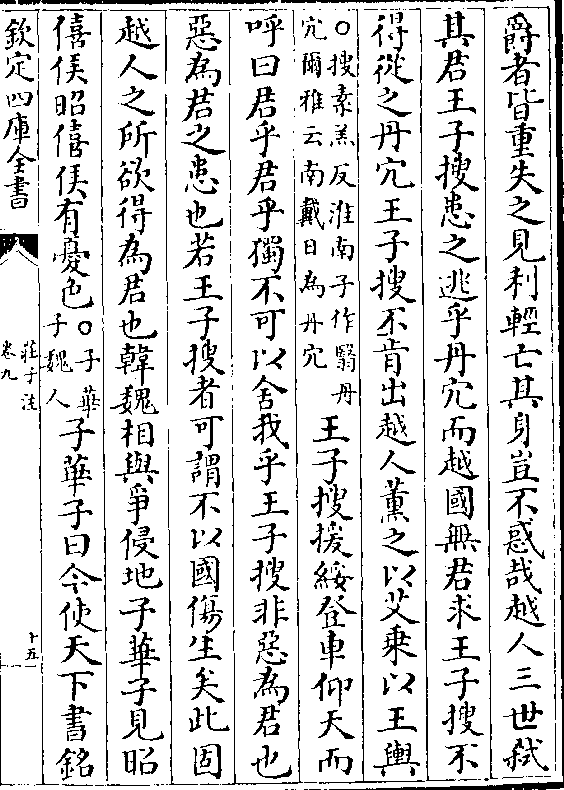 爵者皆重失之見利輕亡其身豈不惑哉越人三世弑
其君王子搜患之逃乎丹穴而越國無君求王子搜不
得從之丹穴王子搜不肯出越人薰之以艾乗以王輿
○搜素羔反淮南子作翳丹
穴爾雅云南戴日為丹穴
王子搜援綏登車仰天而
呼曰君乎君乎獨不可以舍我乎王子搜非惡為君也
惡為君之患也若王子搜者可謂不以國傷生矣此固
越人之所欲得為君也韓魏相與爭侵地子華子見昭
僖侯昭僖侯有憂色
○子華
子魏人
子華子曰今使天下書銘
欽定四庫全書
莊子注
卷九
十五